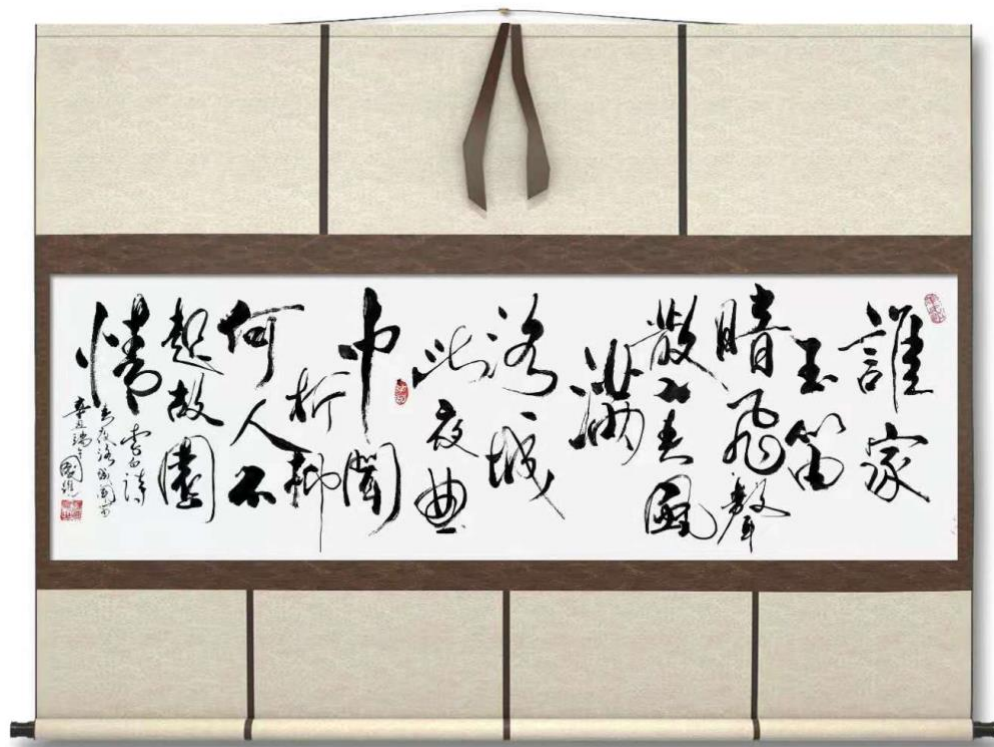 誰家
玉笛
暗飛聲
散入春風
滿
洛城
此夜曲
中聞
折柳
何人不
起故園
情
李白詩
春夜洛城聞笛